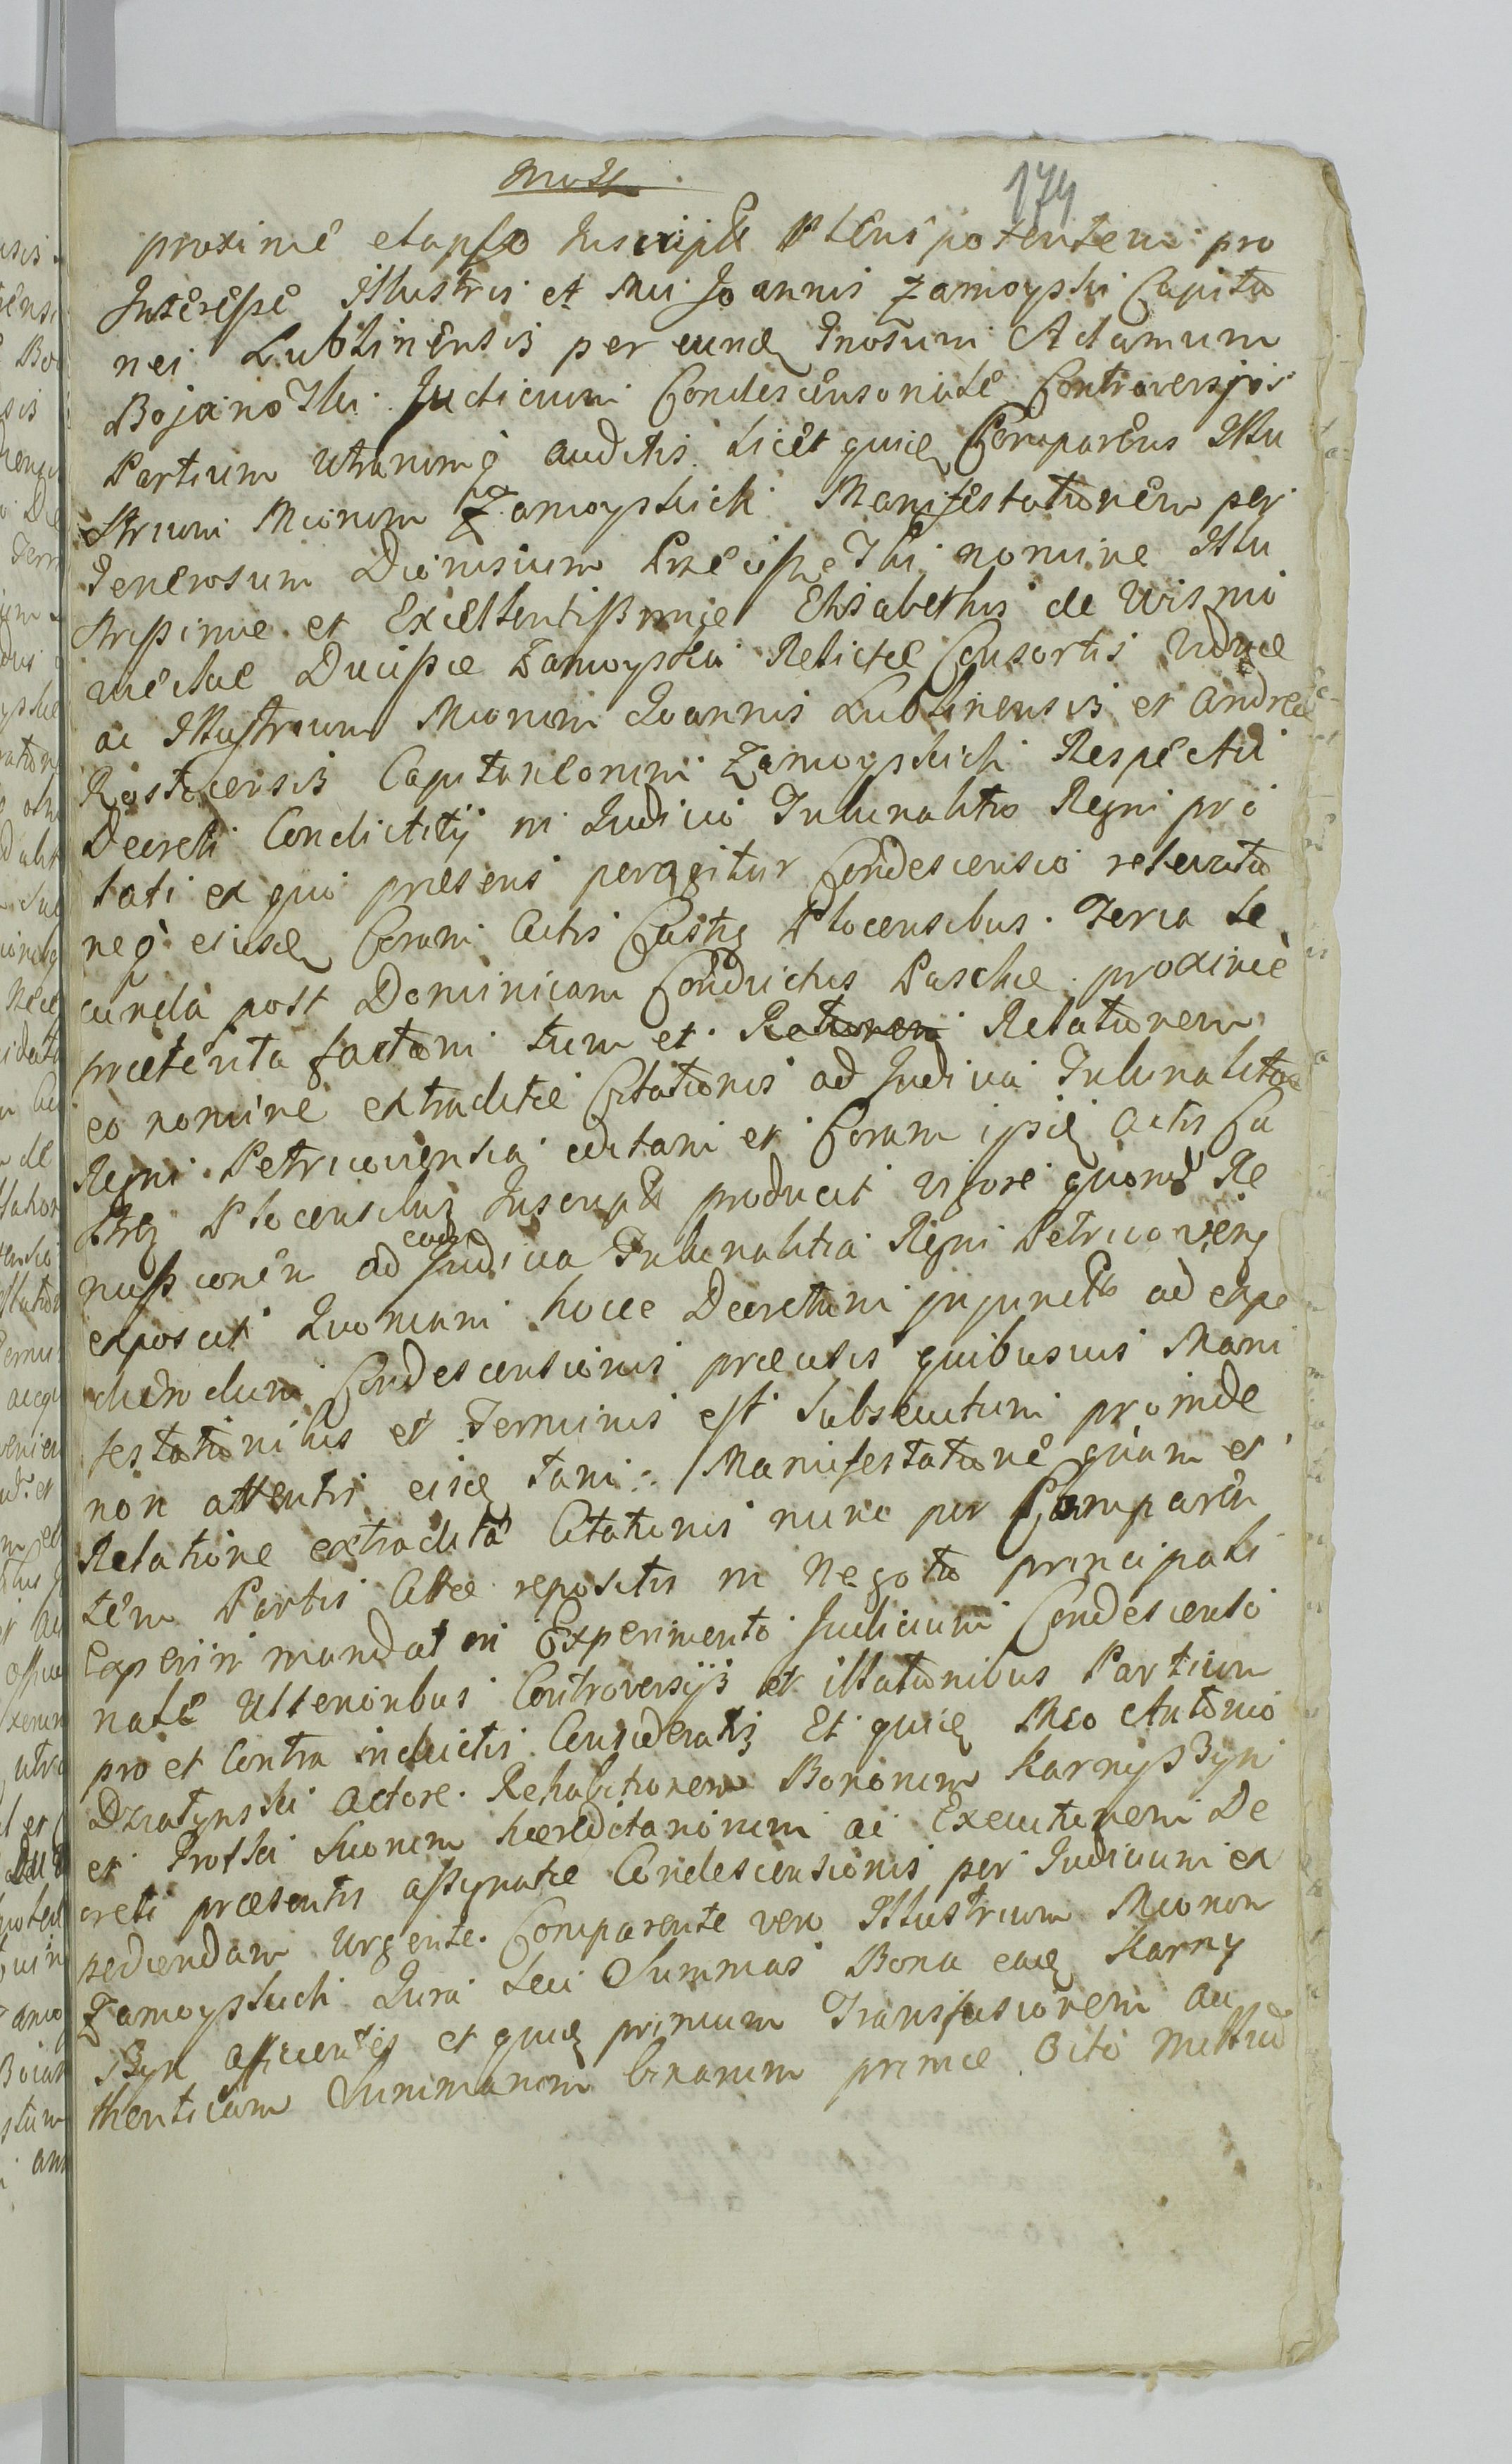 174
proxime elapso Inscripta Plens potentem pro
Interesse Illustris et Mci Joannis Zamoyski Capita
nei Lublinensis per eund Gnosum Adamum
Bojanoski Judicium Condescensoriale Controversjis
Partium utrarumq auditis. Licet quid Comparens Illu
strium Mcorum Zamoyskich Manifestationem per
Generosum Dionisium nomine Illu
strissimae et Excellentissimae Elisabethis de Wisnio
wieckae Ducissae Zamoyska Relictae Consortis Viduae
ac Illustrium Mcorum Joannis Lublinensis et Andreae
Rostocensis Capitaneorum Zamoyskich Respectu
Decreti Condictitij in Judicio Tribunalitio Regni pro
lati ex quo praesens peragitur Condescensio relevatio
neq ejusd Coram Actis Castr Plocensibus Feria Se
cunda post Dominicam Conductus Paschae proxime
praeterita factam tum et Relationem
eo nomine extraditae Citationis ad Judicia Tribunalitia
Regni Petricoviensia editam et Coram ipsis Actis Ca
str Plocensibus Inscripta producit vigore quorum Re
missionem ad eadem Judicia Tribunalitia Regni Petricovien
exposcit Quoniam hocce Decretum injunctu ad expe
diendum Condescensionis praecisis quibusvis Mani
festationibus et Terminis est subsecutum proinde
non attentis eisd tam Manifestatione quam et
Relatione extradita Citationis nunc per Comparen
tem Partis Citae repositis in Negotio principali
Experiri mandat in Experimento Judicium Condescenso
riale Ulterioribus Controversijs et illationibus Partium
pro et Contra inductis Consideratis Et quid Mco Antonio
Dzialynski Actore Rehabitionem Bonorum Karnyszyn
et Grotki Suorum haereditariorum ac Executionem De
creti praesentis assignatae Condescensionis per Judicium ex
pediendam Urgente. Comparente vero Illustrium Mcorum
Zamoyskich Jura seu Summas Bona ead Karny
szyn afficientes et quid primum Transfusionem au
thenticam Summarum binarum primae Octo Milliu